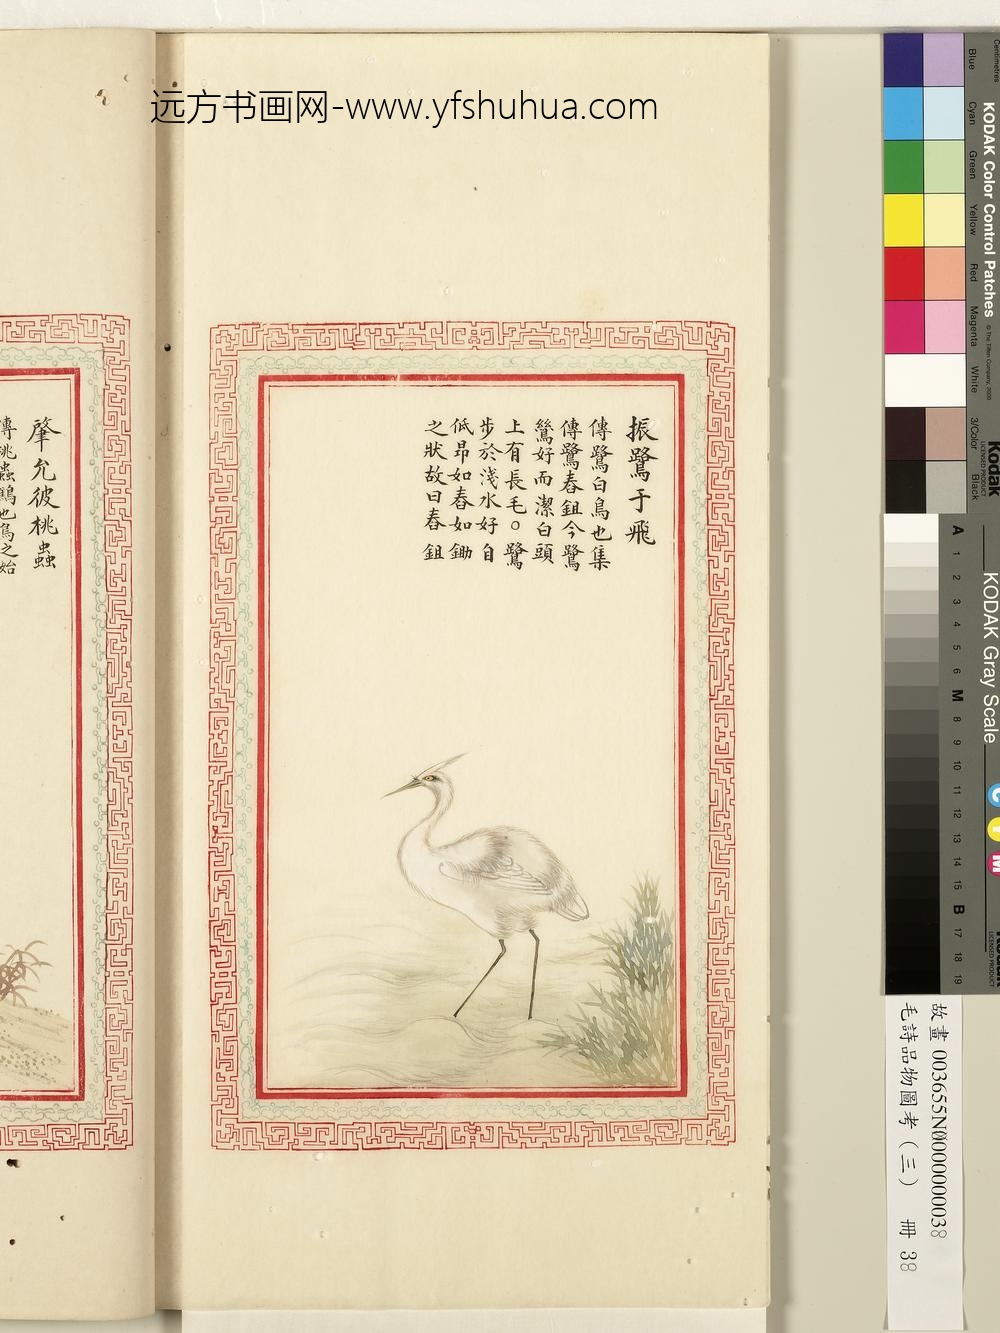 远方书画网-www.yfshuhua.com
振鷺于飛
傳鷺白鳥也集
傳鷺舂鉏今鷺
鷥好而潔白頭
上有長毛○鷺
步於淺水好自
低昂如舂如鋤
之狀故曰舂鉏
肇允彼桃蟲
傳桃蟲鷦也鳥之始
KODAK Color Control Patches
© The Tiffen Company, 2000
Kodak
LICENSED PRODUCT
Centimetres
Blue
Cyan
Green
Yellow
Red
Magenta
White
3/Color
Black
KODAK Gray Scale
C
Y
M
Kodak
LICENSED PRODUCT
A 1 2 3 4 5 6 M 8 9 10 11 12 13 14 15 B 17 18 19
故畫 003655N000000038
毛詩品物圖考(三) 冊 38